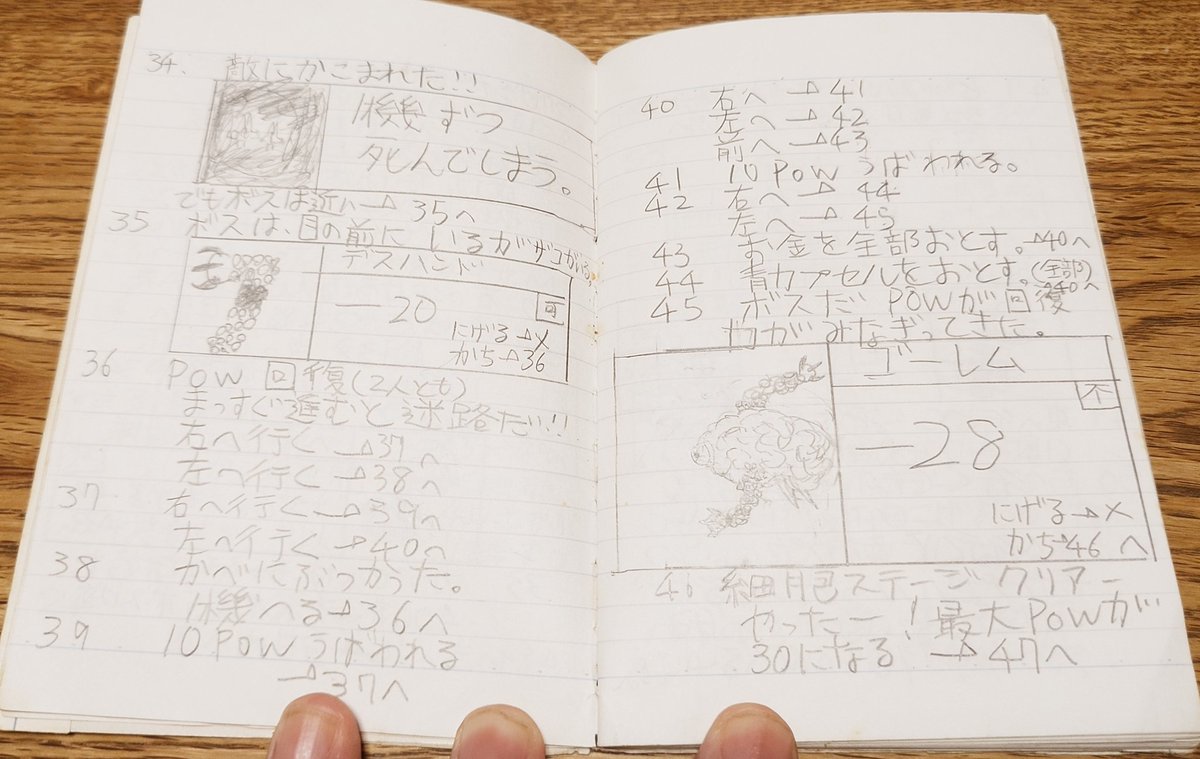 34. 敵にかこまれた!!
1機ずつ
死んでしまう。
でもボスは近い→35へ
35 ボスは、目の前にいるがザコがいる
デスハンド
−20
可
にげる→×
かち→36
36 POW回復(2人とも)
まっすぐ進むと迷路だ!!
右へ行く→37へ
左へ行く→38へ
37 右へ行く→39へ
左へ行く→40へ
38 かべにぶつかった。
1機へる→36へ
39 10POWうばわれる
→37へ
40 右へ→41
左へ→42
前へ→43
41 10POWうばわれる。
42 右へ→44
左へ→45
43 お金を全部おとす。→40へ
44 青カプセルをおとす。(全部)
→40へ
45 ボスだ POWが回復
やがみなぎってきた。
ゴーレム
不
−28
にげる→×
かち→46へ
46 細胞ステージクリアー
やったー!最大POWが
30になる →47へ